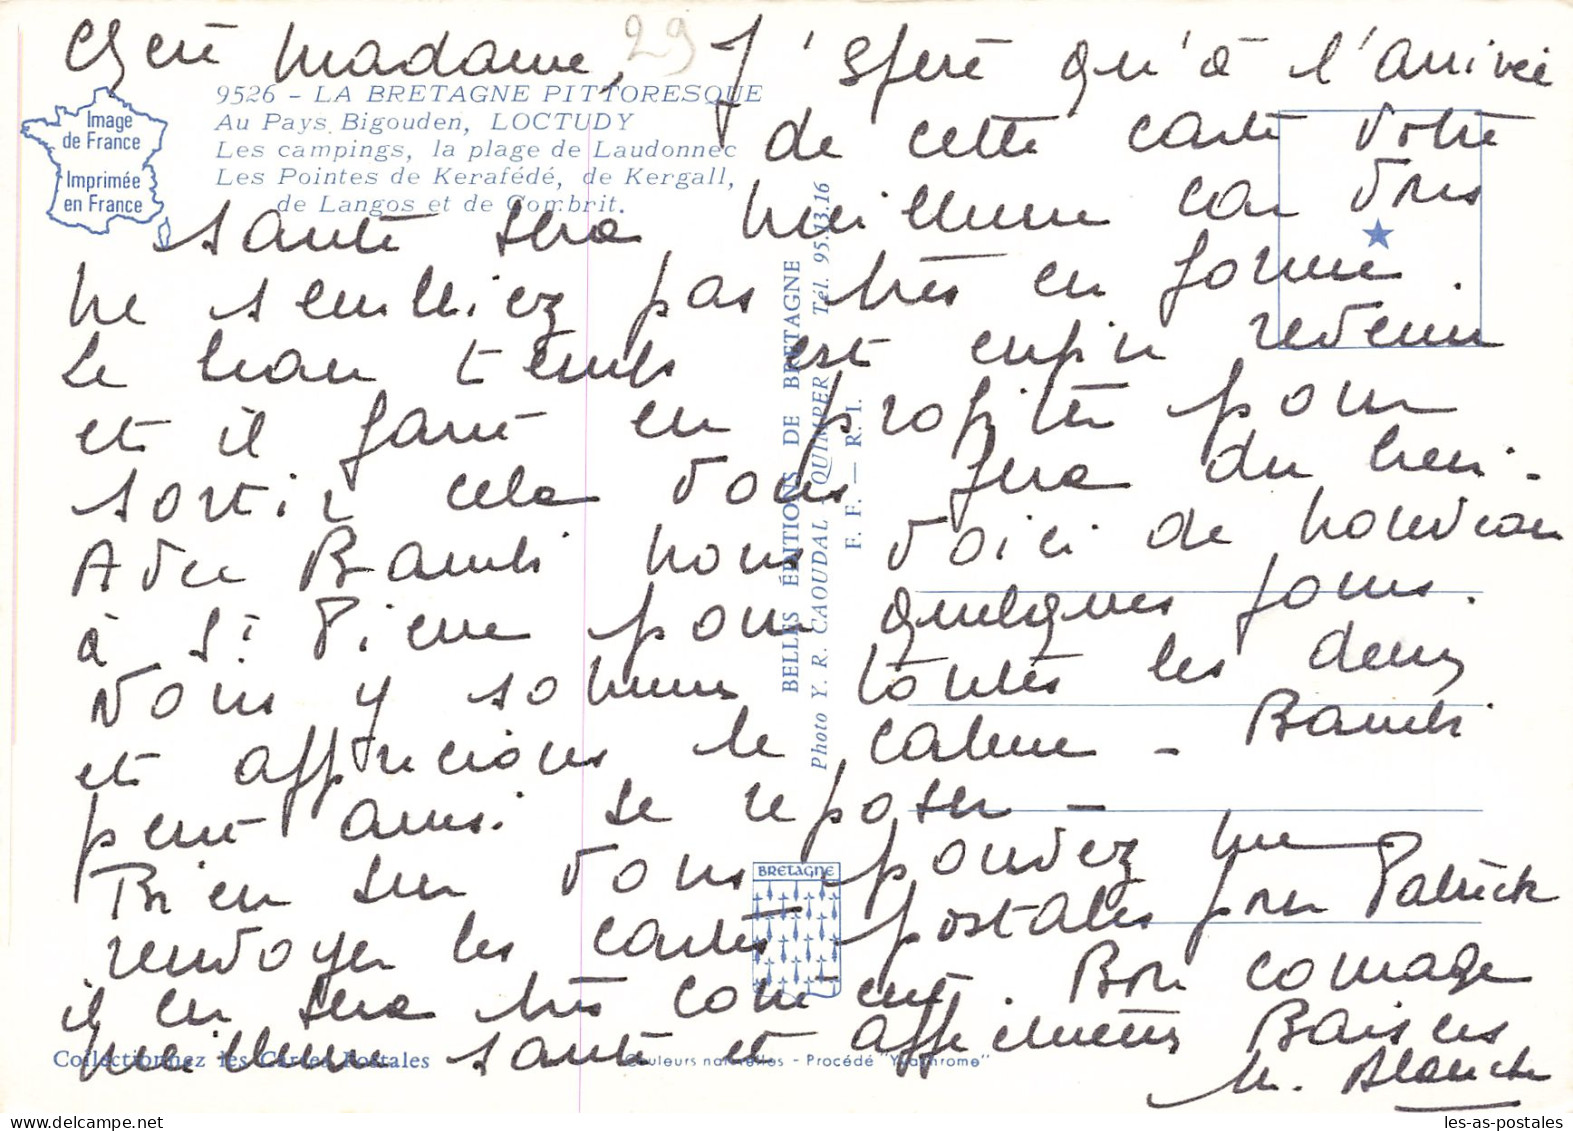 Chère Madame, J'espère qu'à l'arrivée
29
de cette carte votre
santé sera meilleure car vous
ne sembliez pas très en forme.
Le beau temps est enfin revenu
et il faut en profiter pour
sortir cela vous fera du bien.
Avec Bambi nous voici de nouveau
à St Pierre pour quelques jours.
Nous y sommes toutes les deux
et apprécions le calme - Bambi
peut ainsi se reposer -
Bien sur vous pouvez me
renvoyer les cartes postales pour Patrick
il en sera très content. Bon courage
meilleure santé et affectueux Baisers
M. Blanche
Image
de France
Imprimée
en France
9526 - LA BRETAGNE PITTORESQUE
Au Pays Bigouden, LOCTUDY
Les campings, la plage de Laudonnec
Les Pointes de Kerafédé, de Kergall,
de Langos et de Combrit.
BELLES ÉDITIONS DE BRETAGNE
Photo Y. R. CAOUDAL - QUIMPER Tél. 95.13.16
F. F. — R. I.
BRETAGNE
Collectionnez les Cartes Postales
Couleurs naturelles - Procédé "Yvachrome"
les-as-postales